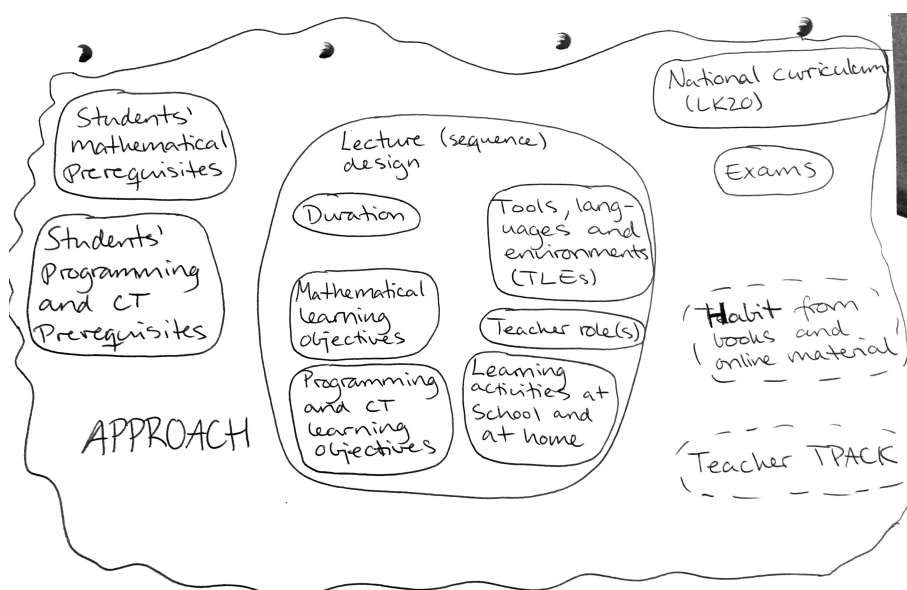 Students'
mathematical
Prerequisites
Students'
Programming
and CT
Prerequisites
APPROACH
Lecture (sequence)
design
Duration
Mathematical
learning
objectives
Programming
and CT
learning
objectives
Tools, lang-
uages and
environments
(TLEs)
Teacher role(s)
Learning
activities at
School and
at home
National curriculum
(LK20)
Exams
Habit from
books and
online material
Teacher TPACK